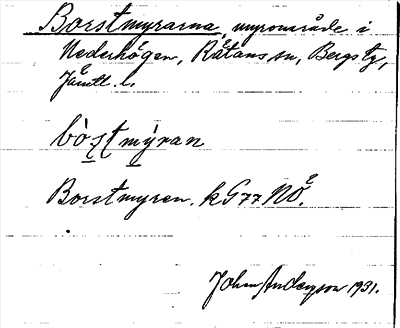 Borstmyrarna, myrområde i
Nederhögen, Råtans sn, Bergs tg,
Jämtl. l.
bòstmýran
Borstmyren. k G77 NÖ.
John Anderson 1931.